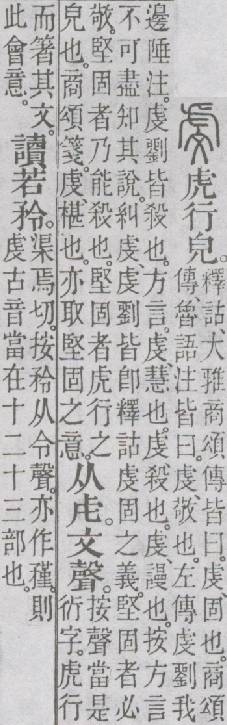 虔 虎行皃。
釋詁、大雅商頌傳皆曰。虔、固也。商頌
傳、魯語注皆曰。虔、敬也。左傳虔劉我
邊陲注。虔劉皆殺也。方言。虔、慧也。虔、殺也。虔、謾也。按方言
不可盡知其說。糾虔、虔劉皆卽釋詁虔固之義。堅固者必
敬。堅固者乃能殺也。堅固者虎行之
皃也。商頌箋。虔、椹也。亦取堅固之意。
从虍。文聲。
按聲當是
衍字。虎行
而箸其文。
此會意。
讀若矜。
渠焉切。按矜从令聲。亦作𥎊。則
虔古音當在十二十三部也。